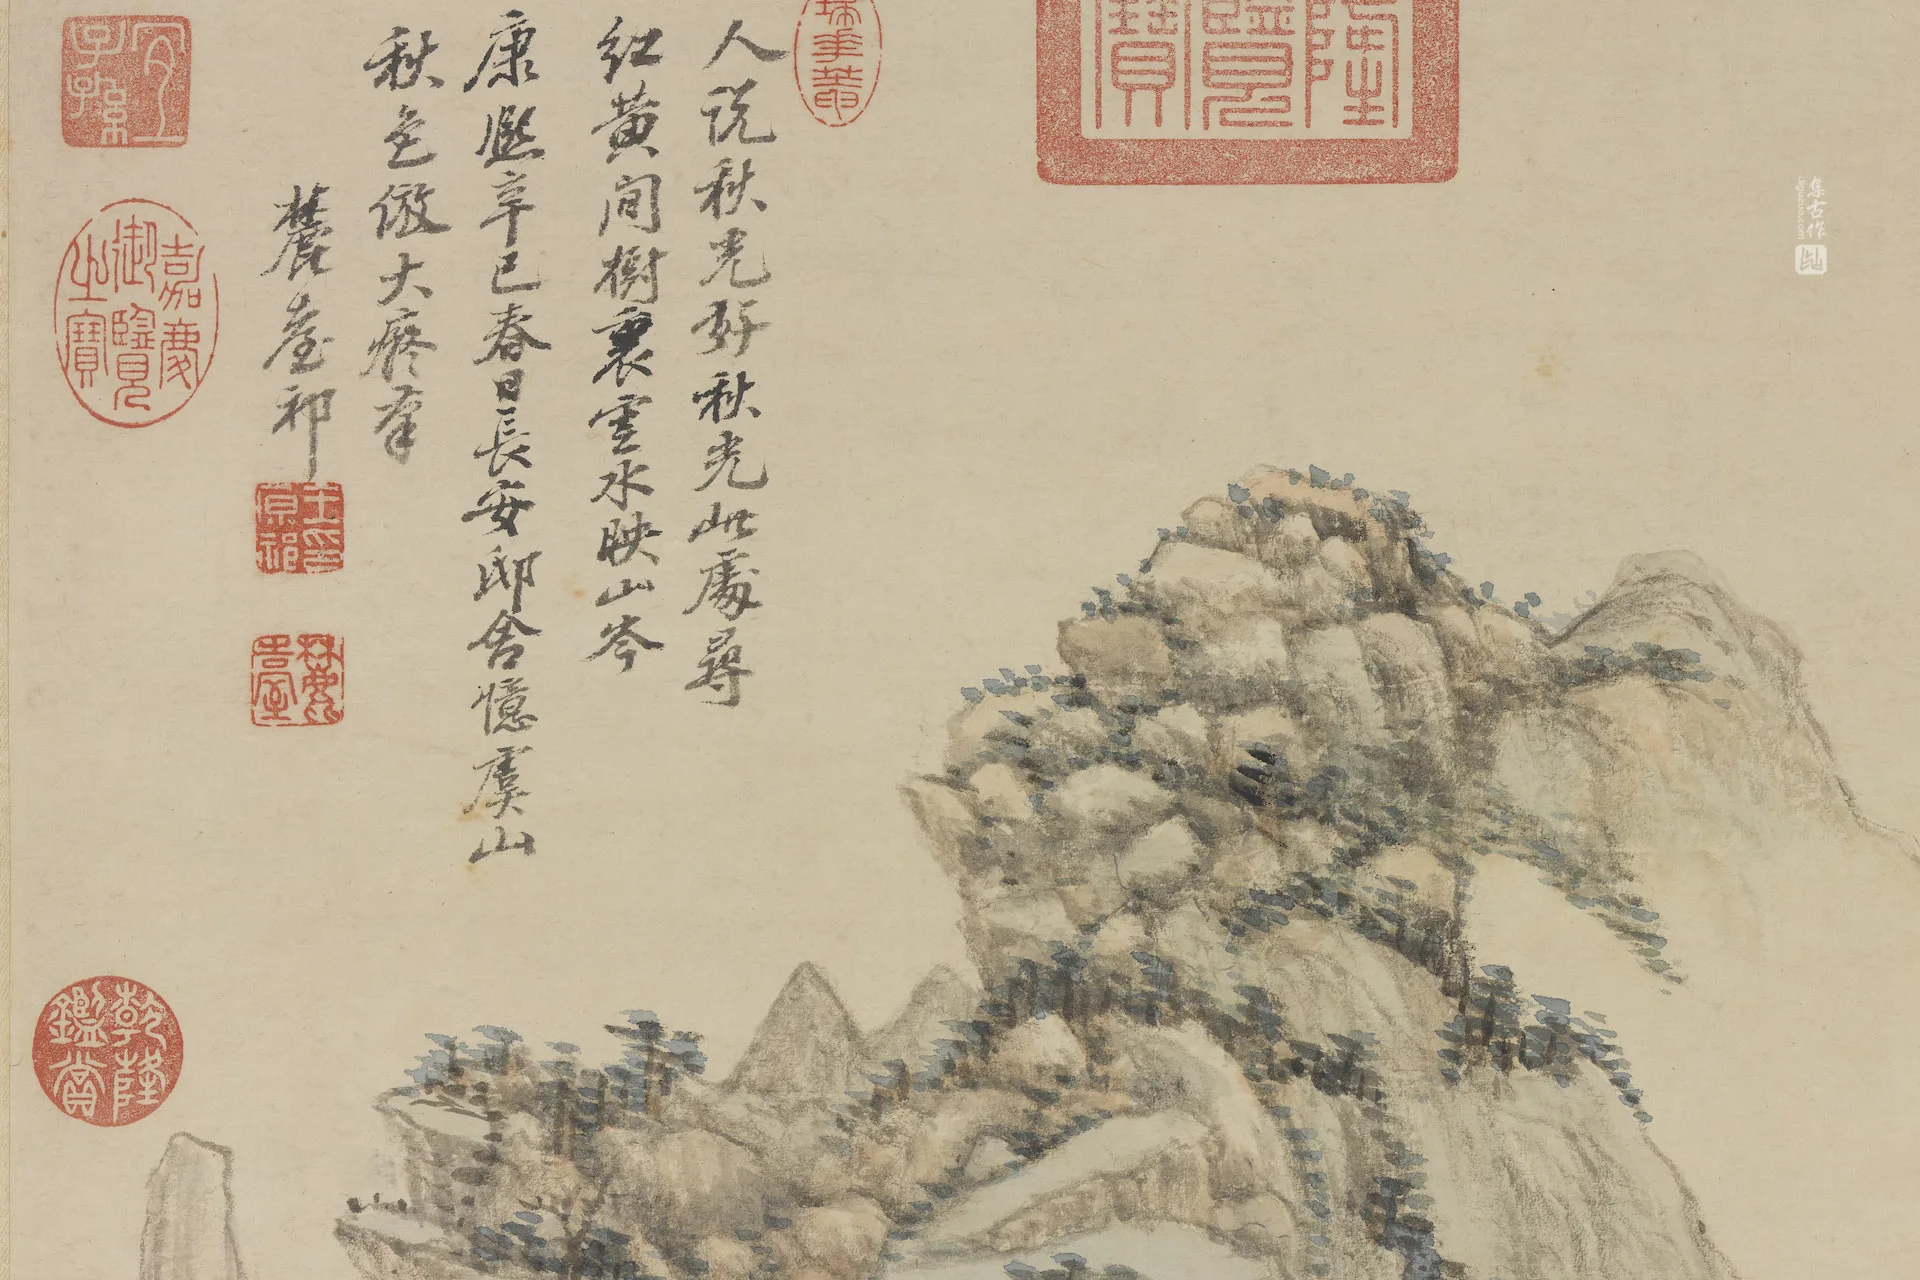 人說秋光好秋光此處尋
紅黃間樹裏雲水映山岑
康熙辛巳春日長安邸舍憶虞山
秋色倣大癡筆
麓臺祁
王原祁印
麓臺
宜子孫
嘉慶御覽之寶
乾隆鑑賞
隆覽寶
集古作